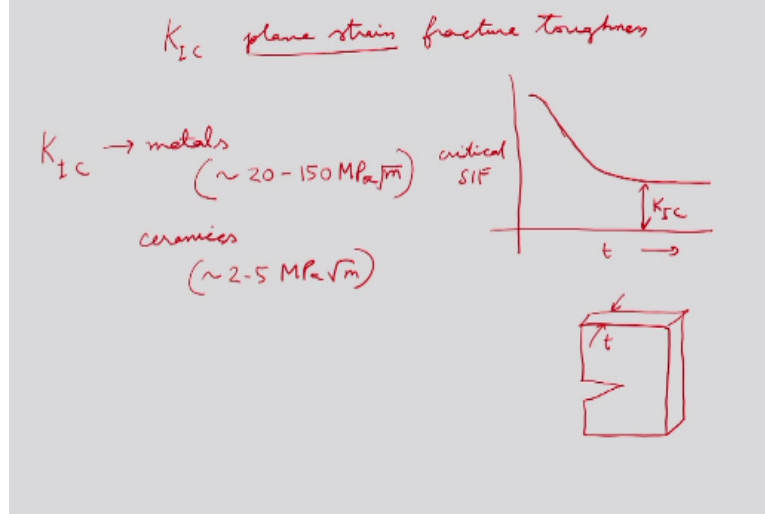 K_IC plane strain fracture toughness
K_IC → metals
(~ 20 - 150 MPa√m)
ceramics
(~ 2-5 MPa√m)
critical
SIF
K_IC
t →
t